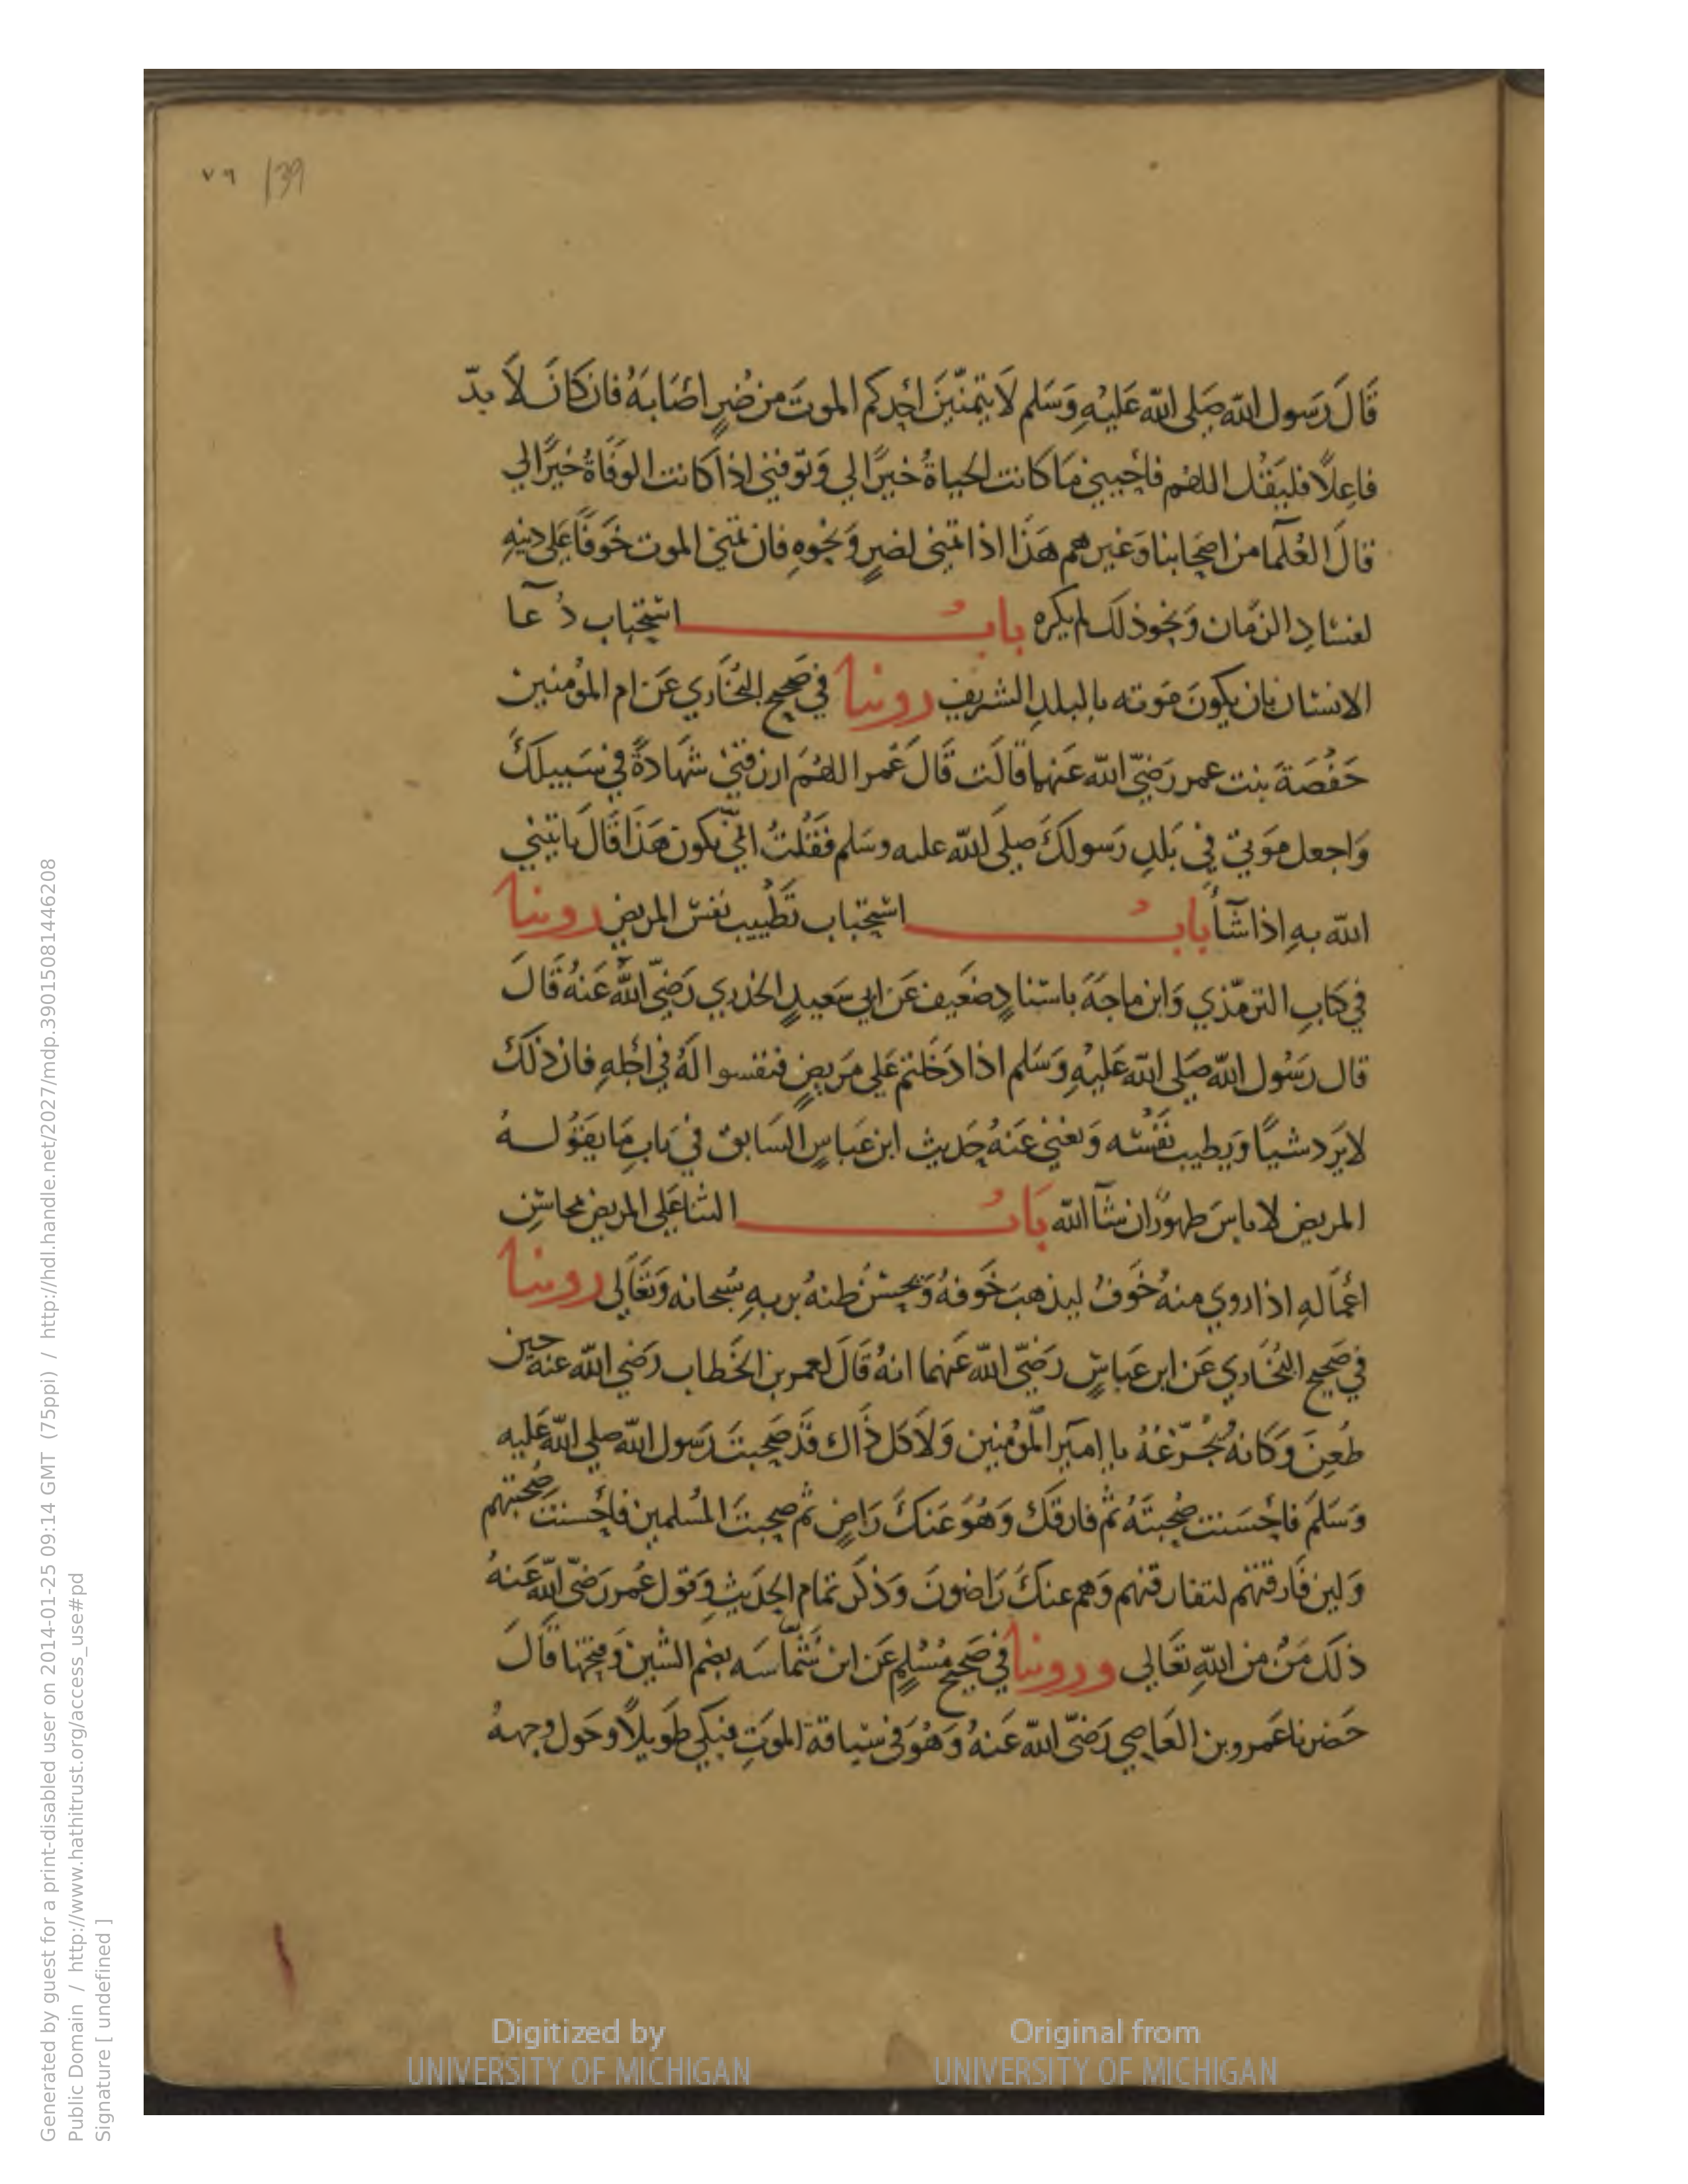 ٧٩ 139
قَالَ رَسول الله صَلى الله عَليْهِ وَسَلم لَا يتمنّينَ احدكم الموتَ من ضُرٍ اصَابَهُ فان كانَ لَا بدّ
فاعِلًا فليَقُل اللهم فاحييني مَا كانت الحياةُ خيرًا لي وَتوفني اذا كانت الوفَاةُ خيرًا لي
قالَ العُلمآ من اصحابنا وَغيرهم هَذَا اذا تمنى لضرٍ وَنحوهِ فان تمنى الموت خَوفًا عَلى دينهِ
لفسَادِ الزمان وَنحوذلكَ لم يكره بابُ استحباب دُعآ
الانسَان بان يكونَ مَوته بالبلدِ الشريف روينا في صَحيح البُخَاري عَن ام المؤمنين
حَفصَةَ بنت عمر رَضيَ الله عَنهما قالَت قَالَ عُمر اللهُمَ ارزقني شهَادَةً في سَبيلكَ
وَاجعل مَوتي فِي بَلدِ رَسولكَ صلى الله عليه وسَلم فقُلتُ انّي يكون هَذا قَالَ ياتيني
الله بهِ اذا شآأ بابُ استحباب تَطييب نفس المريض روينا
في كتابِ الترمذي وَابن ماجَهَ باسنادٍ ضعَيف عَن ابي سَعيدٍ الخدري رَضيَ اللهُ عَنهُ قَالَ
قال رَسُول الله صَلى الله عَليْهِ وَسَلم اذا دَخَلتم عَلى مَريضٍ فنفسوا لَهُ في اجلهِ فان ذلكَ
لا يَرد شيًا وَيطيب نفسَه وَيغني عَنهُ حَديث ابن عَباسٍ السَابق في بَابِ مَا يقوُلـهُ
المريض لا باسَ طهورًا ان شآ الله بَابُ الثنا عَلى المريض بمحاسِن
اعمَالهِ اذا روي منهُ خَوفُ ليذهبَ خَوفهُ وَيحسن ظنهُ بربهِ سُبحانه وَتعَالى روينا
في صَحيح البُخَاري عَن ابن عَباسٍ رَضيَ الله عَنهما انهُ قَالَ لعمر بن الخَطاب رَضي الله عنه حين
طُعِنَ وَكانهُ يُجَزّعُهُ يا اميَر المؤمنين وَلَا كل ذَاك قَد صَحبتَ رَسول الله صلى الله عَليه
وَسَلمَ فاحسَنت صُحبتَهُ ثم فارقكَ وَهُوَ عَنكَ رَاضٍ ثم صحبتَ المُسلمين فاحسنت صُحبتهم
وَلين فَارقتهُم لتفارقنهم وَهم عنكَ رَاضونَ وَذكر تمام الحَديثِ وَقول عُمر رَضيَ الله عَنهُ
ذلكَ مَنٌ من اللهِ تعَالي وروينا في صَحيح مُسْلمٍ عَن ابن شَمّاسَه بضم الشين وَفتحها قَالَ
حَضرنا عَمرو بن العَاصي رَضيَ الله عَنهُ وَهُوَ في سيَاقة الموَتِ فبكي طَويلًا وَحَول وجههُ
Generated by guest for a print-disabled user on 2014-01-25 09:14 GMT (75ppi) / http://hdl.handle.net/2027/mdp.39015081446208
Public Domain / http://www.hathitrust.org/access_use#pd
Signature [ undefined ]
Digitized by
UNIVERSITY OF MICHIGAN
Original from
UNIVERSITY OF MICHIGAN